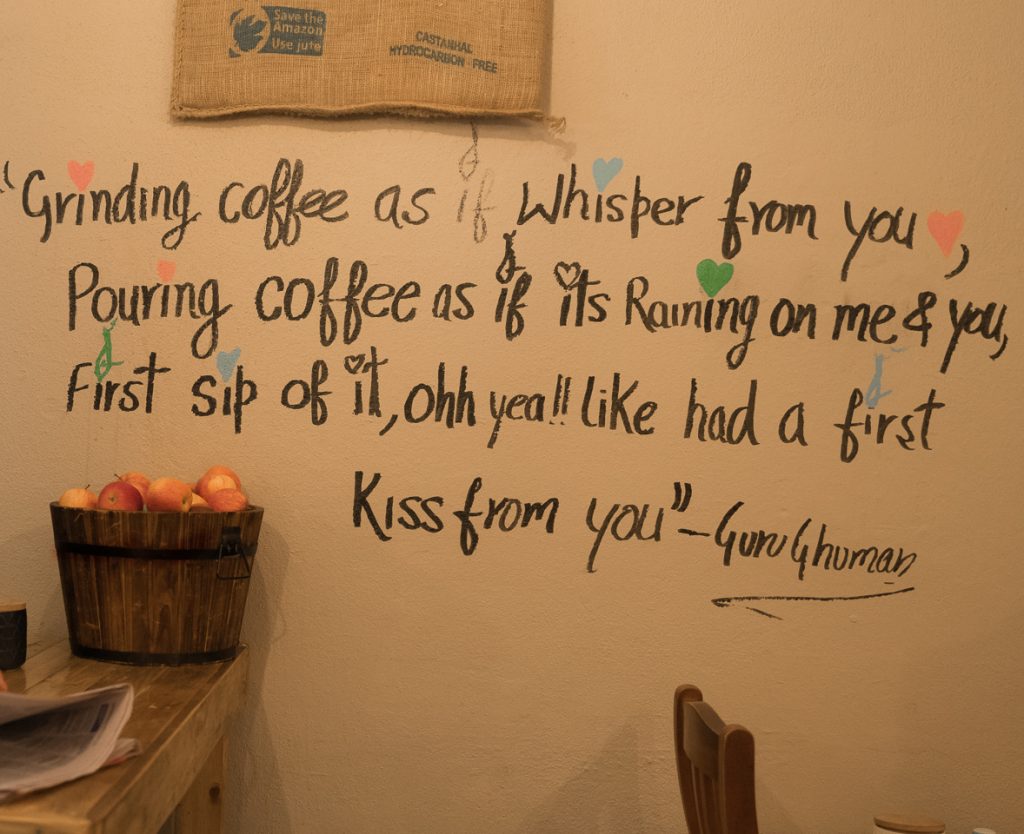 Save the
Amazon
Use jute
CASTANHAL
HYDROCARBON FREE
"Grinding coffee as if Whisper from you,
Pouring coffee as if its Raining on me & you,
First sip of it, ohh yea!! like had a first
Kiss from you" - Guru Ghuman